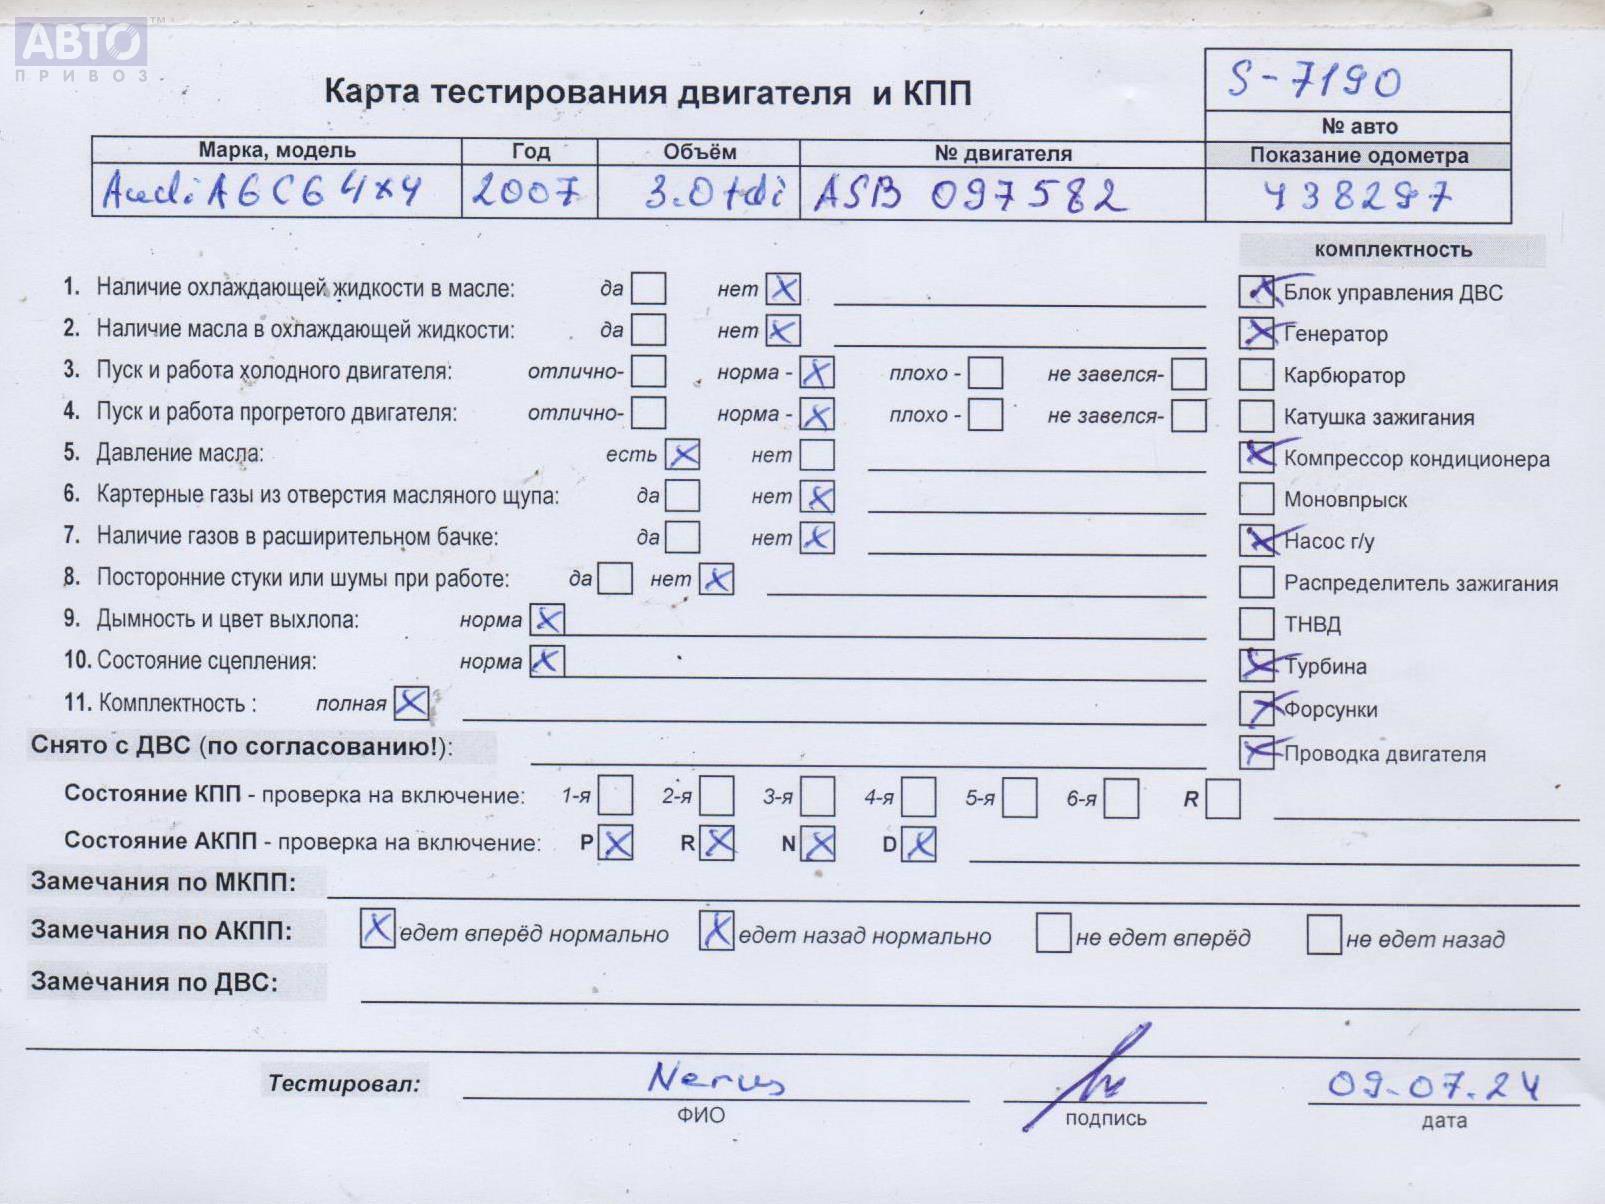 АВТО ™
ПРИВОЗ
Карта тестирования двигателя и КПП
S-7190
№ авто
Марка, модель Год Объём № двигателя Показание одометра
Audi A6C6 4x4 2007 3.0 tdi ASB 097582 438297
комплектность
1. Наличие охлаждающей жидкости в масле: да нет X
Блок управления ДВС X
2. Наличие масла в охлаждающей жидкости: да нет X
Генератор X
3. Пуск и работа холодного двигателя: отлично- норма - X плохо - не завелся-
Карбюратор
4. Пуск и работа прогретого двигателя: отлично- норма - X плохо - не завелся-
Катушка зажигания
5. Давление масла: есть X нет
Компрессор кондиционера X
6. Картерные газы из отверстия масляного щупа: да нет X
Моновпрыск
7. Наличие газов в расширительном бачке: да нет X
Насос г/у X
8. Посторонние стуки или шумы при работе: да нет X
Распределитель зажигания
9. Дымность и цвет выхлопа: норма X
ТНВД
10. Состояние сцепления: норма X
Турбина X
11. Комплектность : полная X
Форсунки X
Снято с ДВС (по согласованию!):
Проводка двигателя X
Состояние КПП - проверка на включение: 1-я 2-я 3-я 4-я 5-я 6-я R
Состояние АКПП - проверка на включение: P X R X N X D X
Замечания по МКПП:
Замечания по АКПП: X едет вперёд нормально X едет назад нормально не едет вперёд не едет назад
Замечания по ДВС:
Тестировал: 09.07.24
ФИО подпись дата